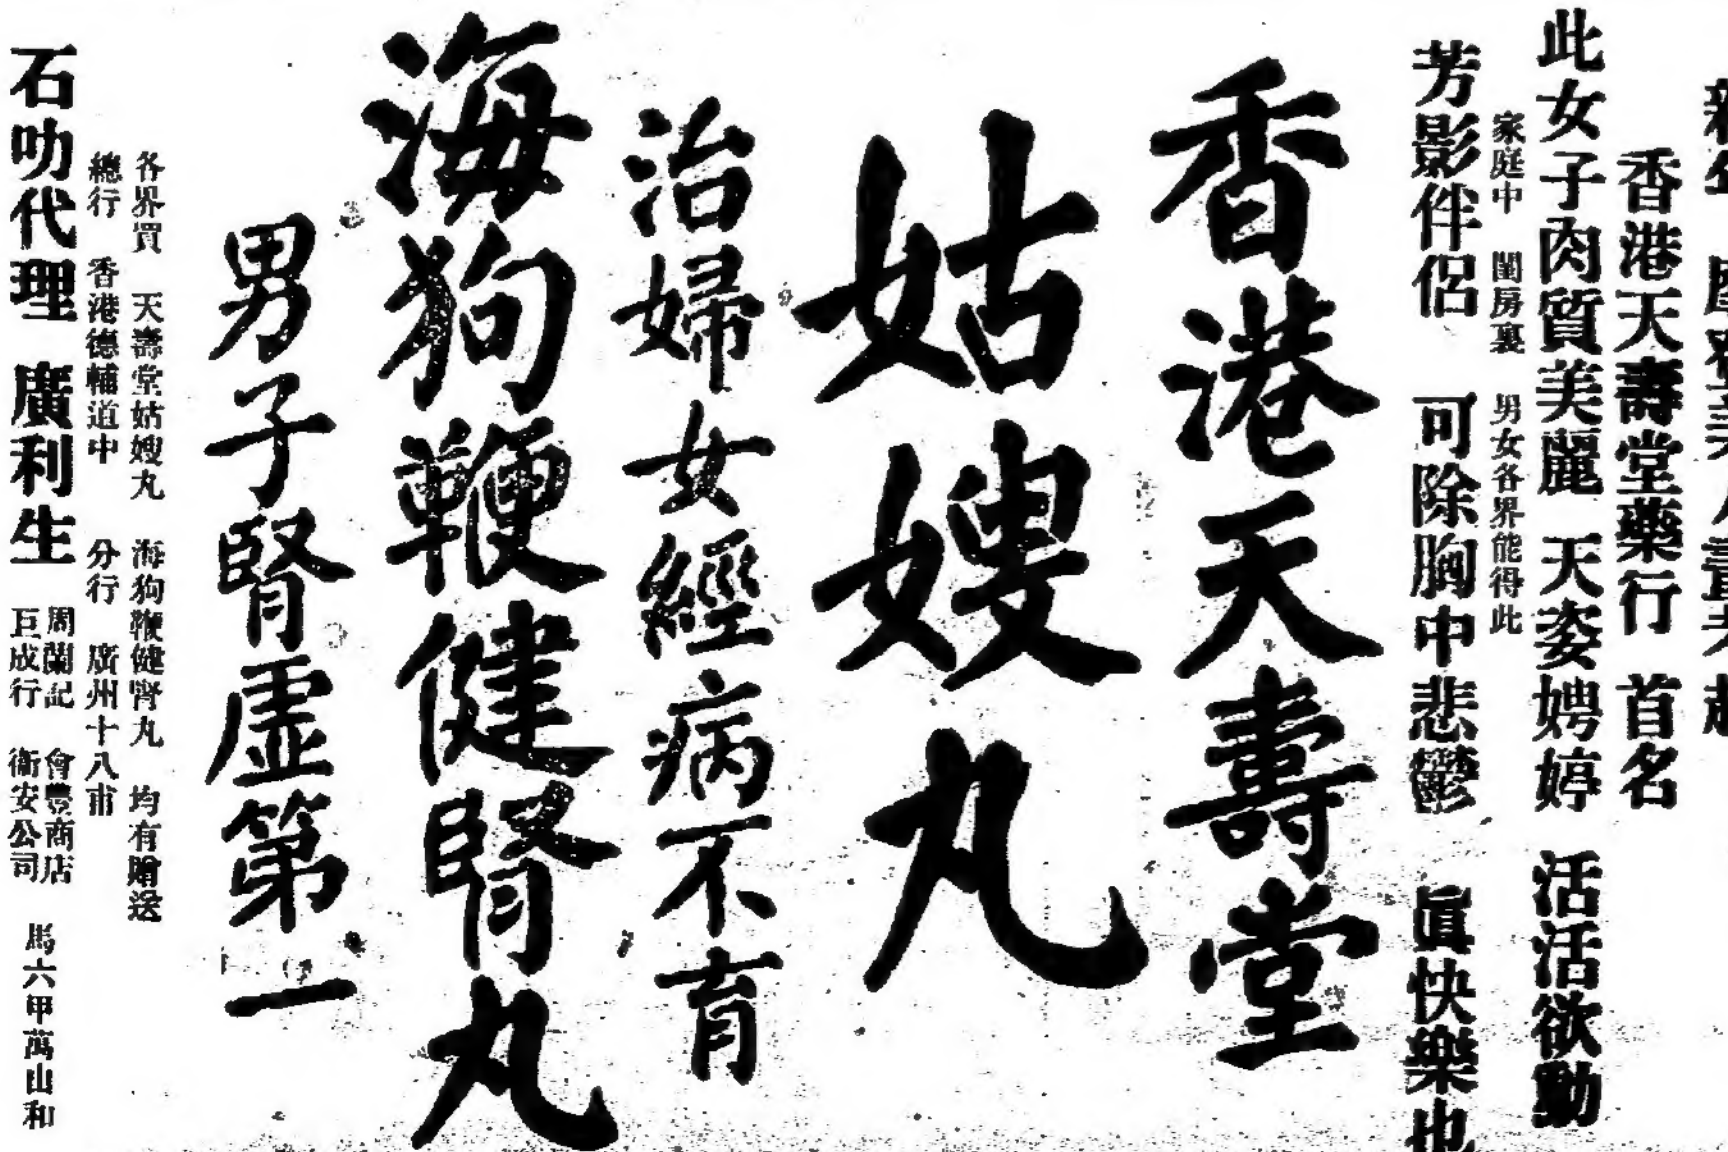 香港天壽堂藥行　首名
此女子肉質美麗　天姿娉婷　活活欲動
家庭中　閨房裏　男女各界能得此
芳影伴侶　可除胸中悲鬱　眞快樂也
香港天壽堂
姑嫂丸
治婦女經病不育
海狗鞭健腎丸
男子腎虛第一
各界買　天壽堂姑嫂丸　海狗鞭健腎丸　均有贈送
總行　香港德輔道中　分行　廣州十八甫
石叻代理　廣利生
周蘭記　會豐商店
巨成行　衛安公司
馬六甲萬山和